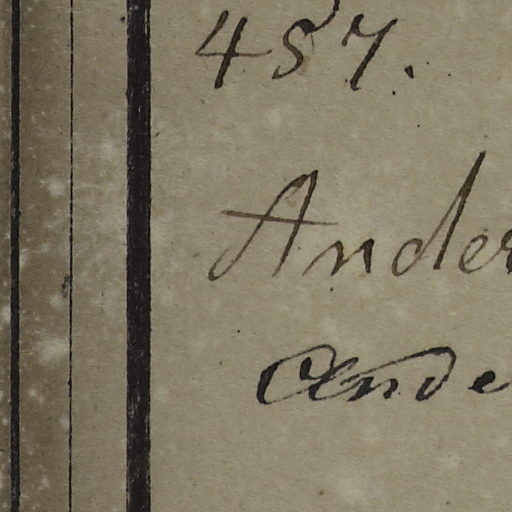 457.
Ander
Ande